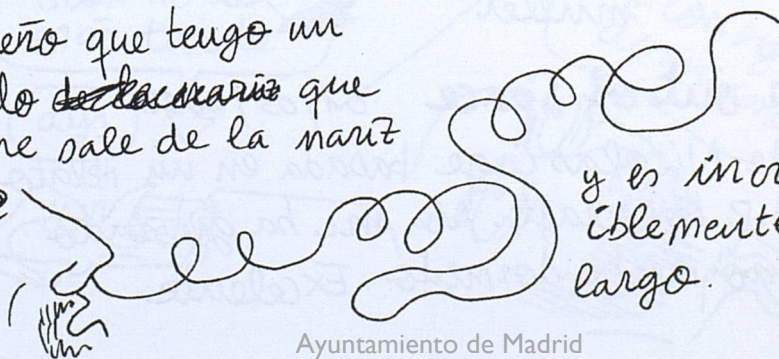 eño que tengo un
lo de la nariz que
me sale de la nariz
y es incre
iblemente
largo.
Ayuntamiento de Madrid